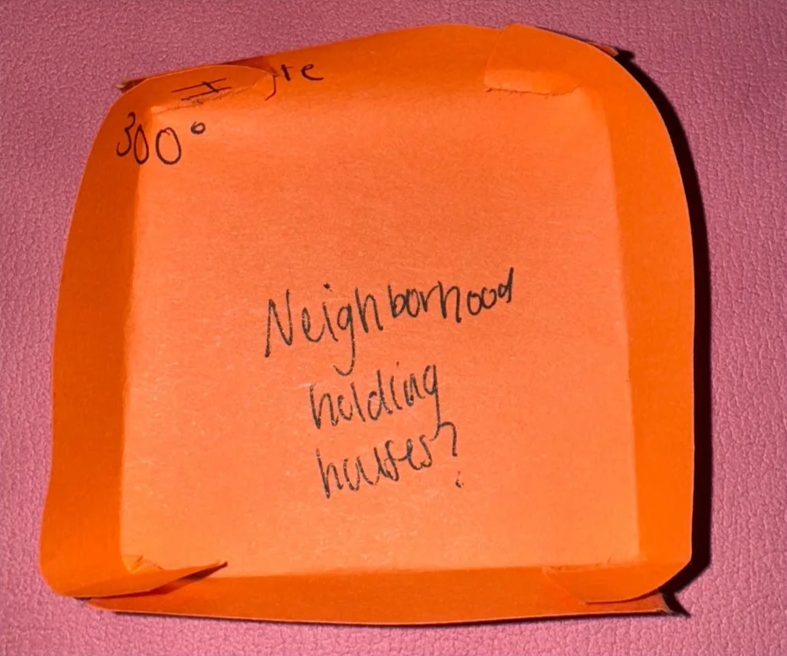 300°
Neighborhood
holding
houses?